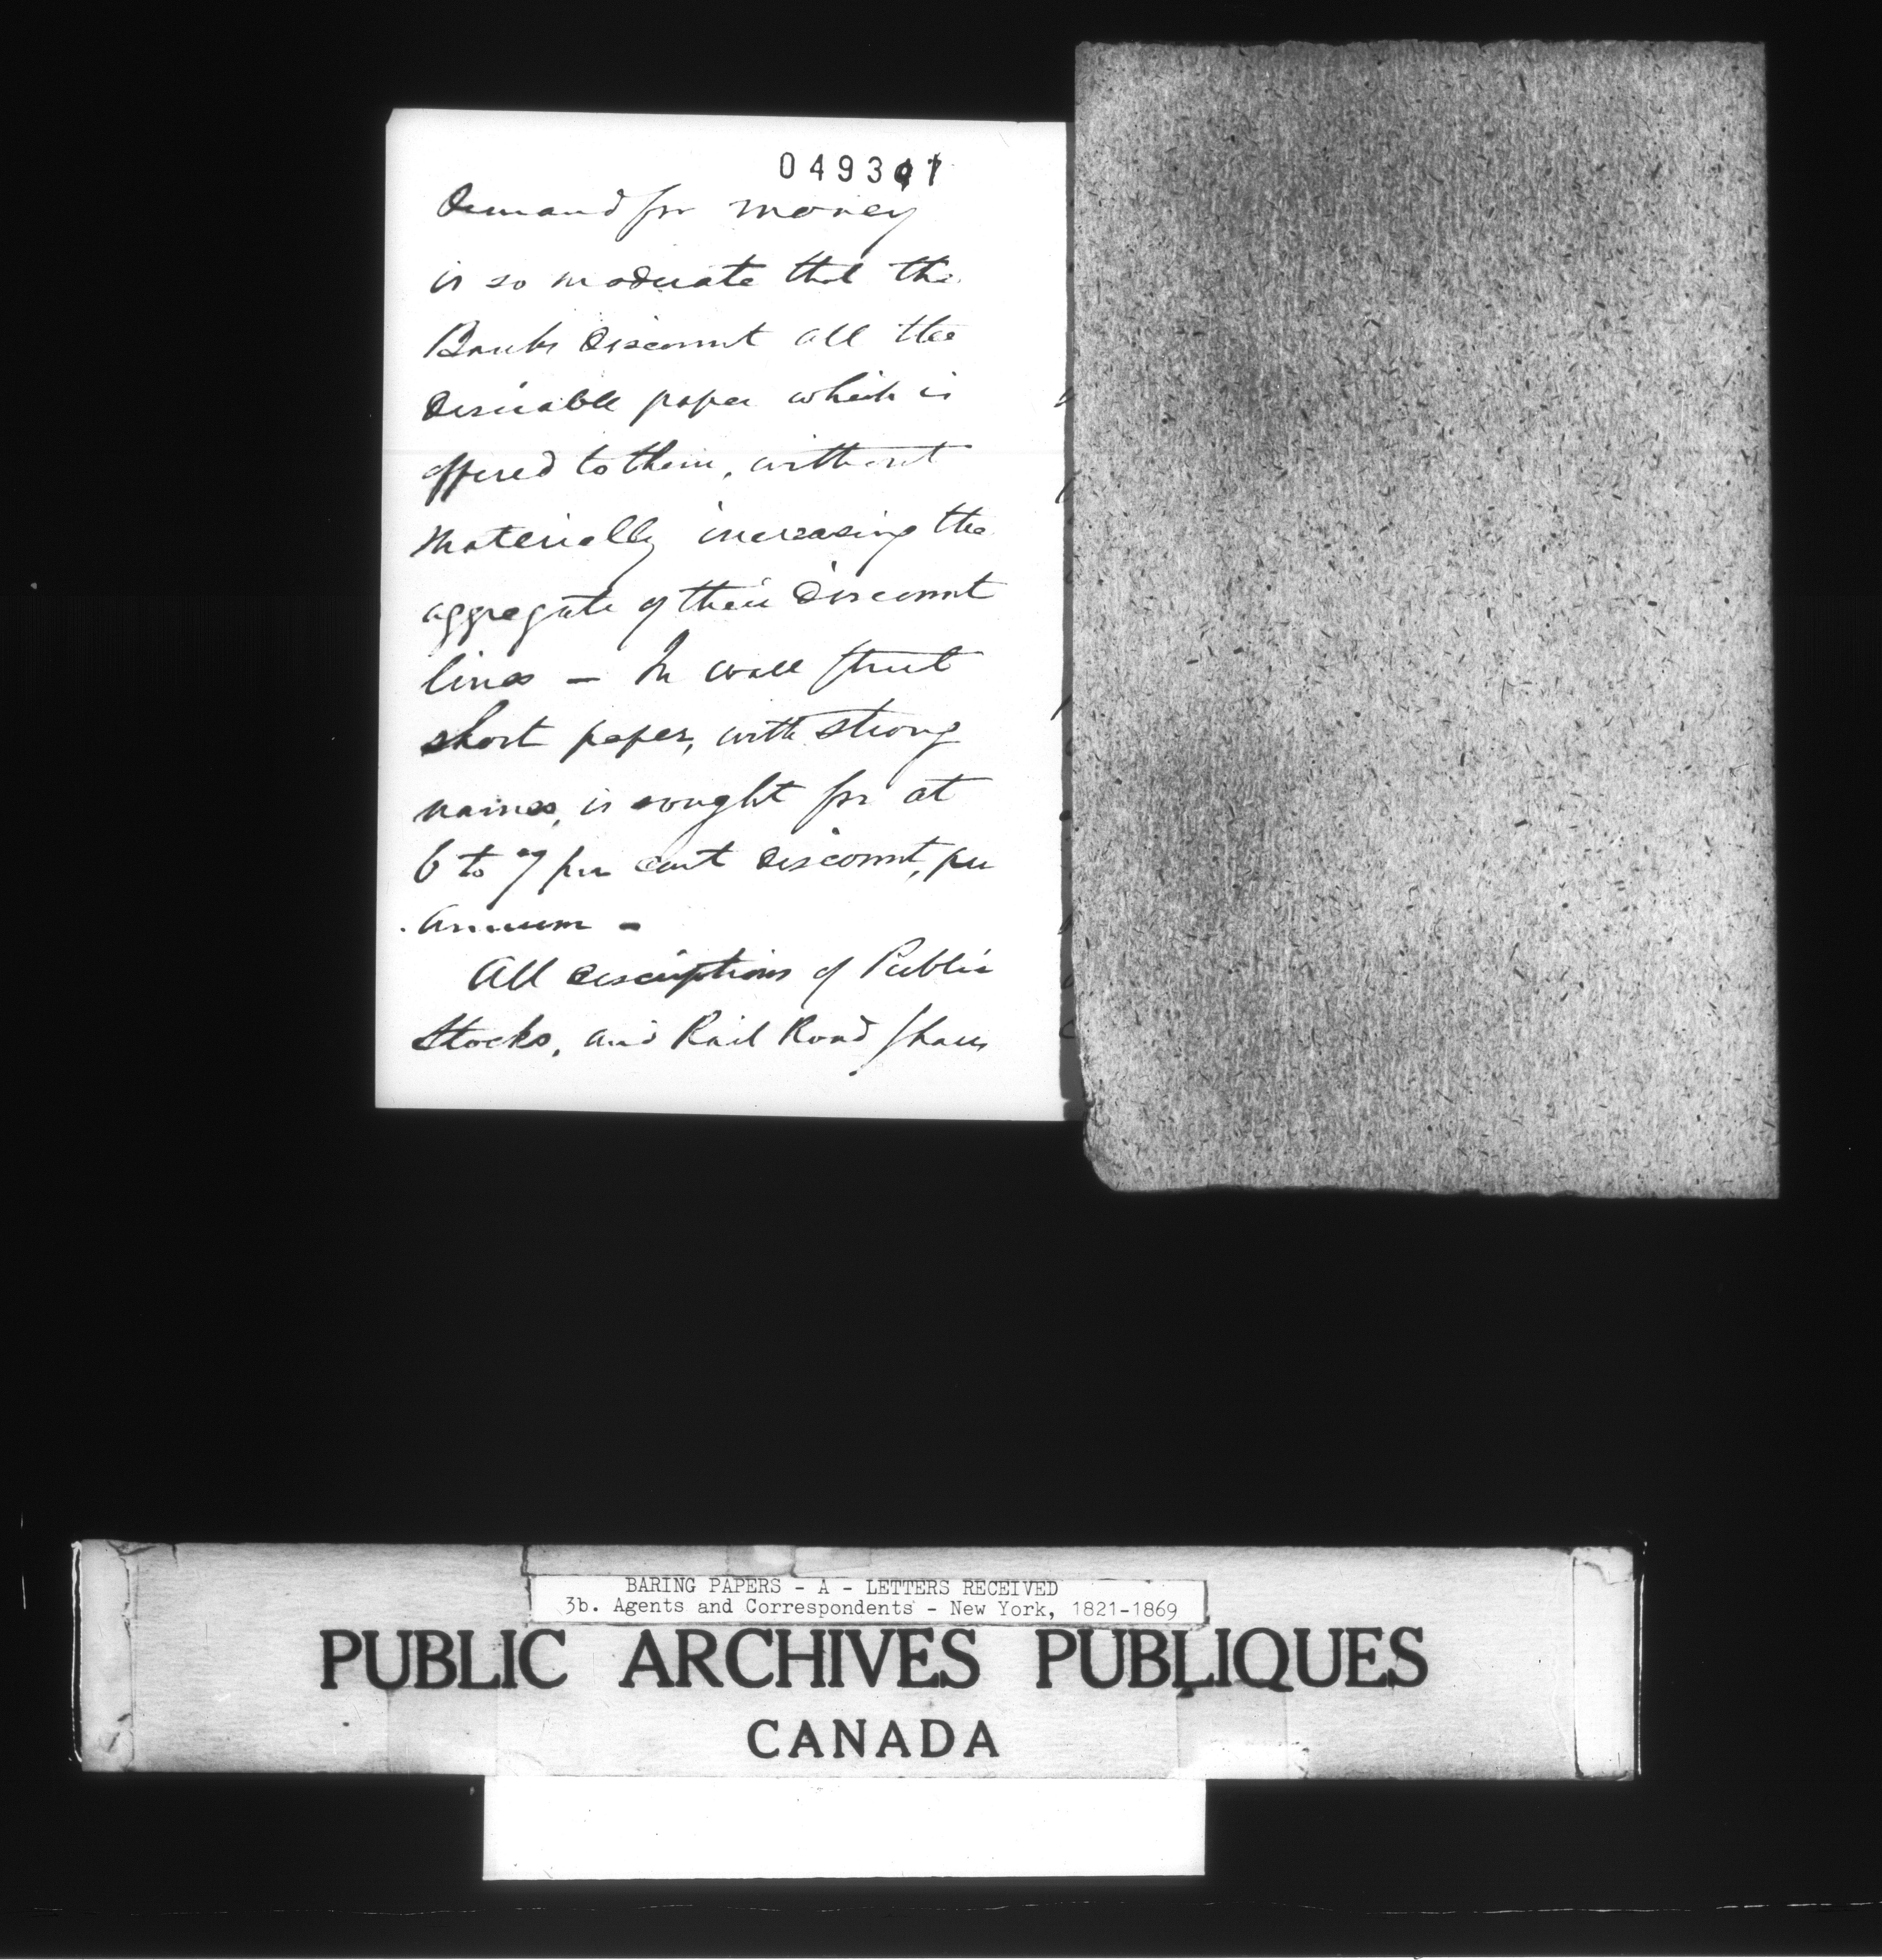 0493
Demand for money
is so moderate that the
Banks discount all the
desirable paper which is
offered to them, without
materially increasing the
aggregate of their discount
lines — In wall street
short paper, with strong
names, is sought for at
6 to 7 per cent discount, per
annum —
All descriptions of Public
Stocks, and Rail Road shares
BARING PAPERS - A - LETTERS RECEIVED
3b. Agents and Correspondents - New York, 1821-1869
PUBLIC ARCHIVES PUBLIQUES
CANADA